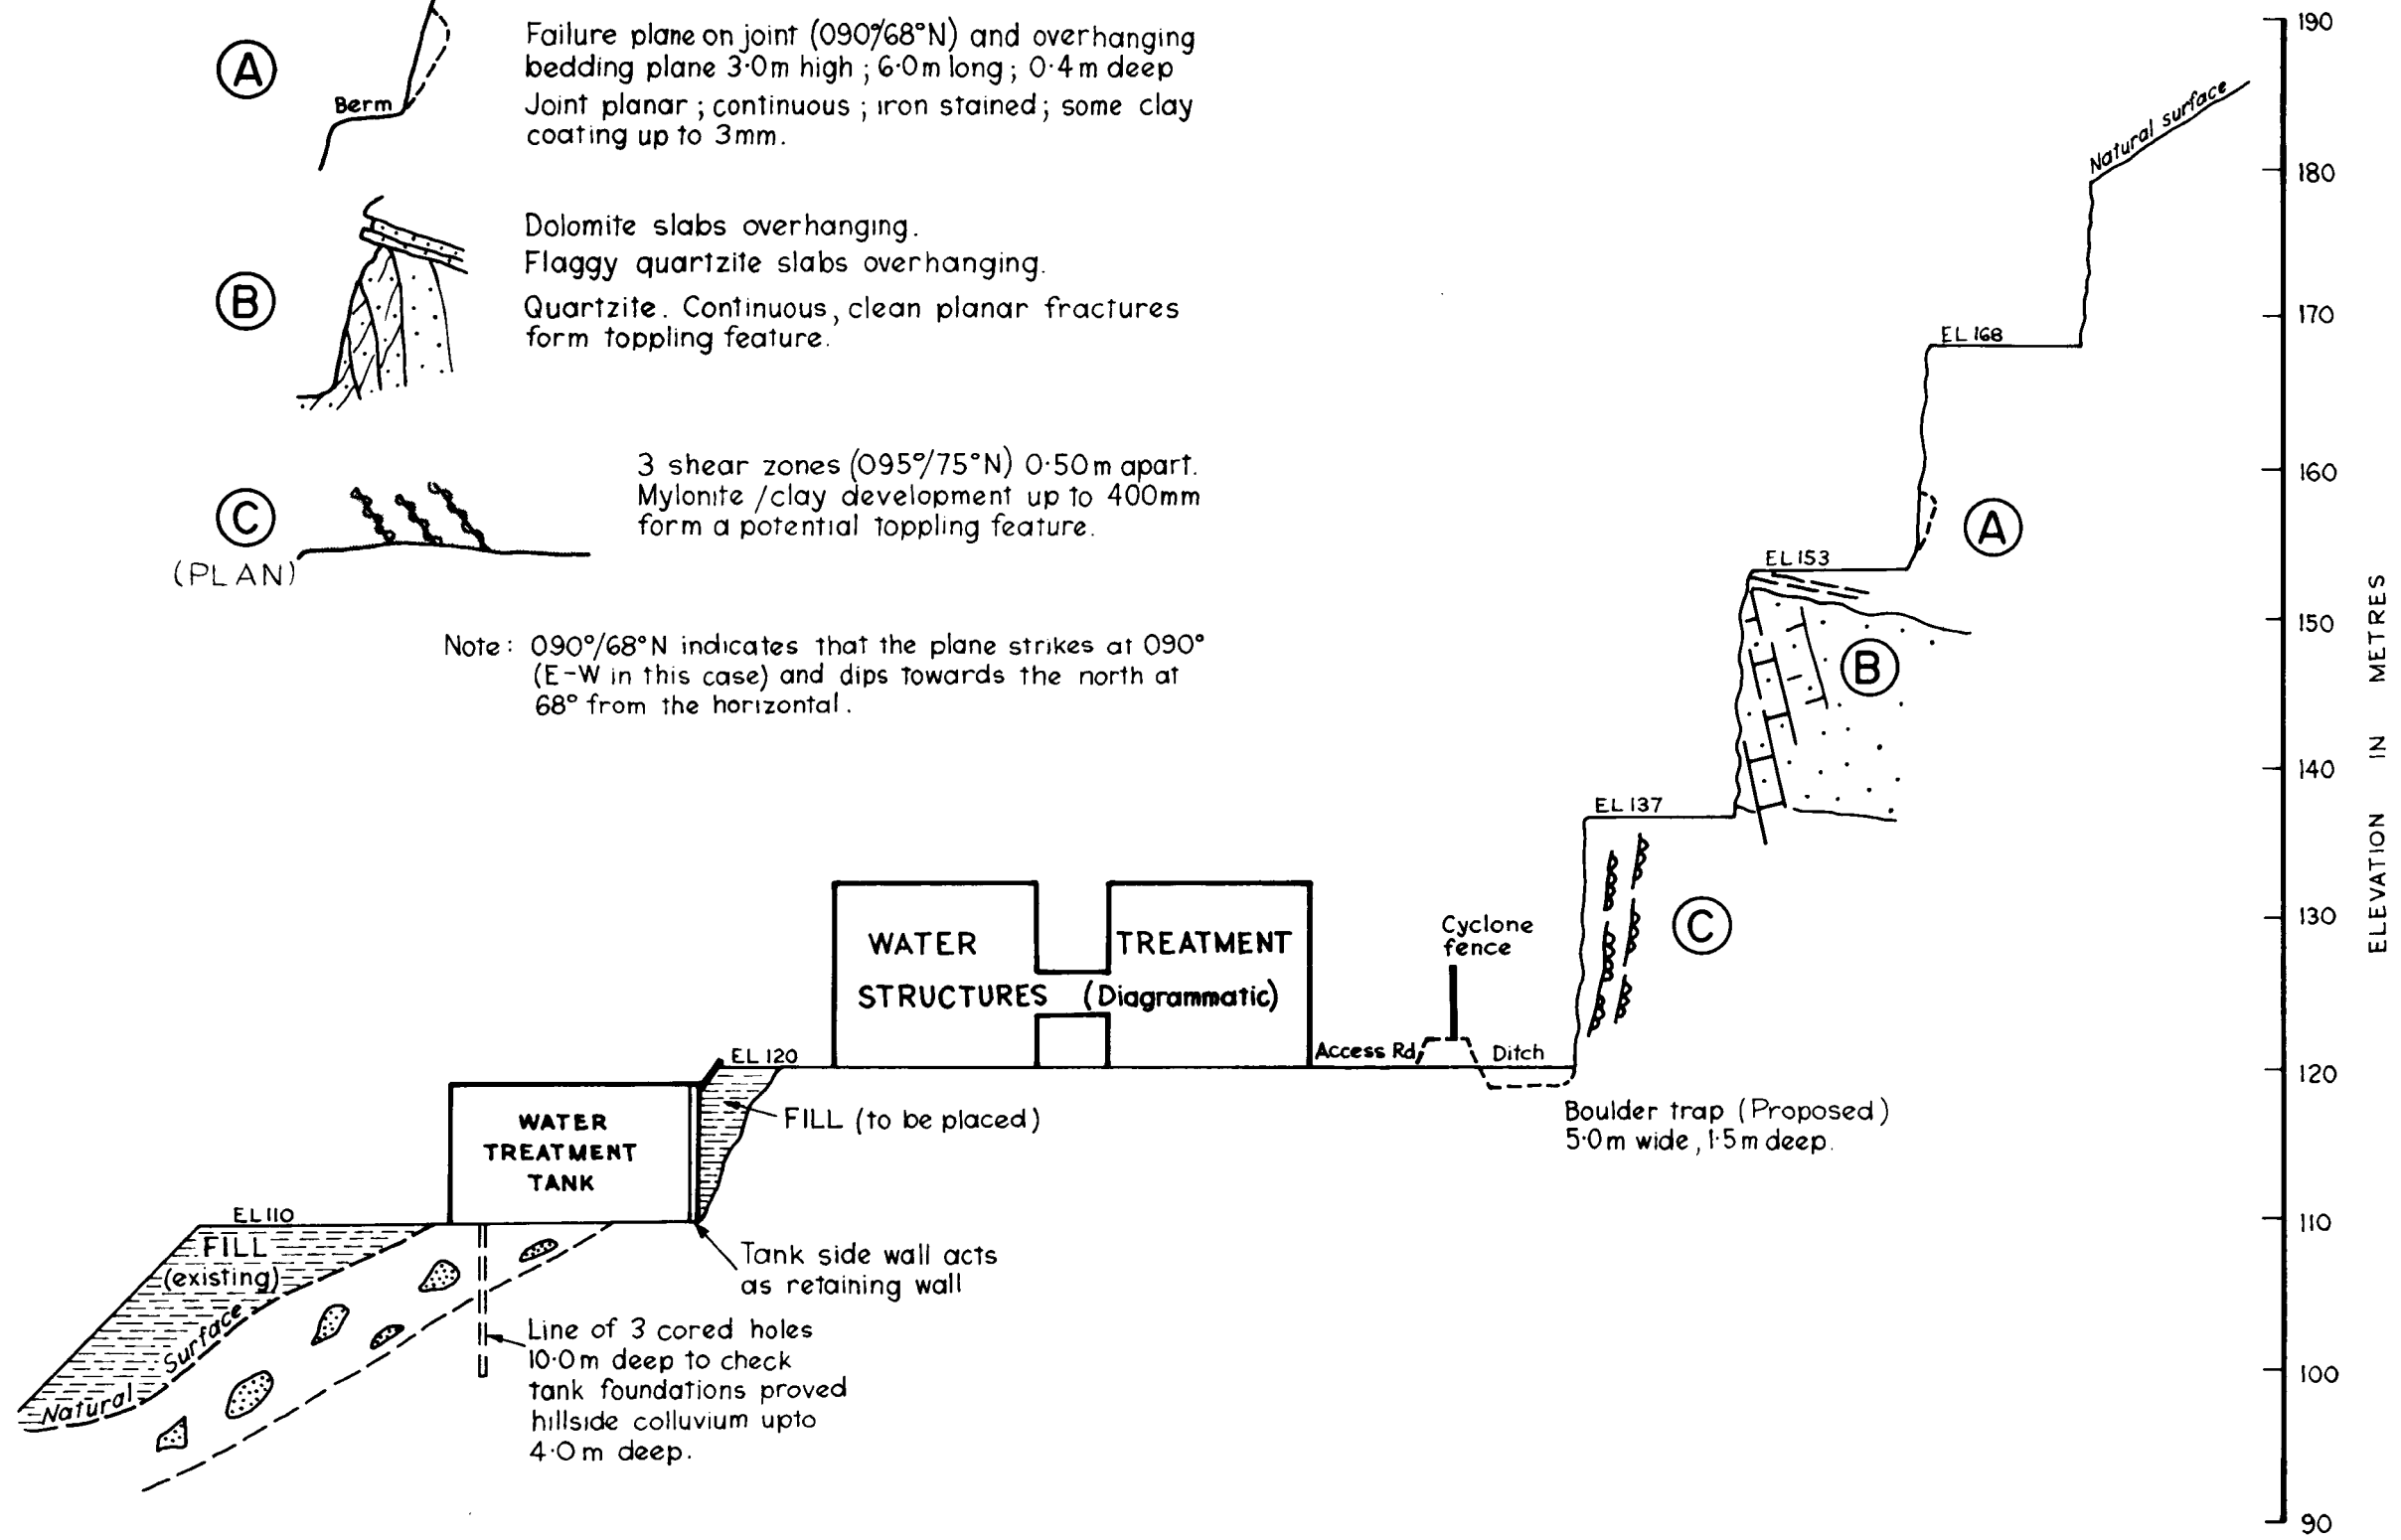 A
Berm
Failure plane on joint (090°/68°N) and overhanging
bedding plane 3·0m high ; 6·0m long ; 0·4m deep
Joint planar ; continuous ; iron stained ; some clay
coating up to 3mm.
B
Dolomite slabs overhanging.
Flaggy quartzite slabs overhanging.
Quartzite. Continuous, clean planar fractures
form toppling feature.
C
(PLAN)
3 shear zones (095°/75°N) 0·50m apart.
Mylonite /clay development up to 400mm
form a potential toppling feature.
Note: 090°/68°N indicates that the plane strikes at 090°
(E-W in this case) and dips towards the north at
68° from the horizontal.
Natural surface
EL 168
A
EL 153
B
EL 137
C
WATER TREATMENT
STRUCTURES (Diagrammatic)
Cyclone
fence
Access Rd
Ditch
Boulder trap (Proposed)
5·0m wide, 1·5m deep.
EL 120
FILL (to be placed)
WATER
TREATMENT
TANK
Tank side wall acts
as retaining wall
EL 110
FILL
(existing)
Natural Surface
Line of 3 cored holes
10·0m deep to check
tank foundations proved
hillside colluvium upto
4·0m deep.
190
180
170
160
150
140
130
120
110
100
90
ELEVATION IN METRES